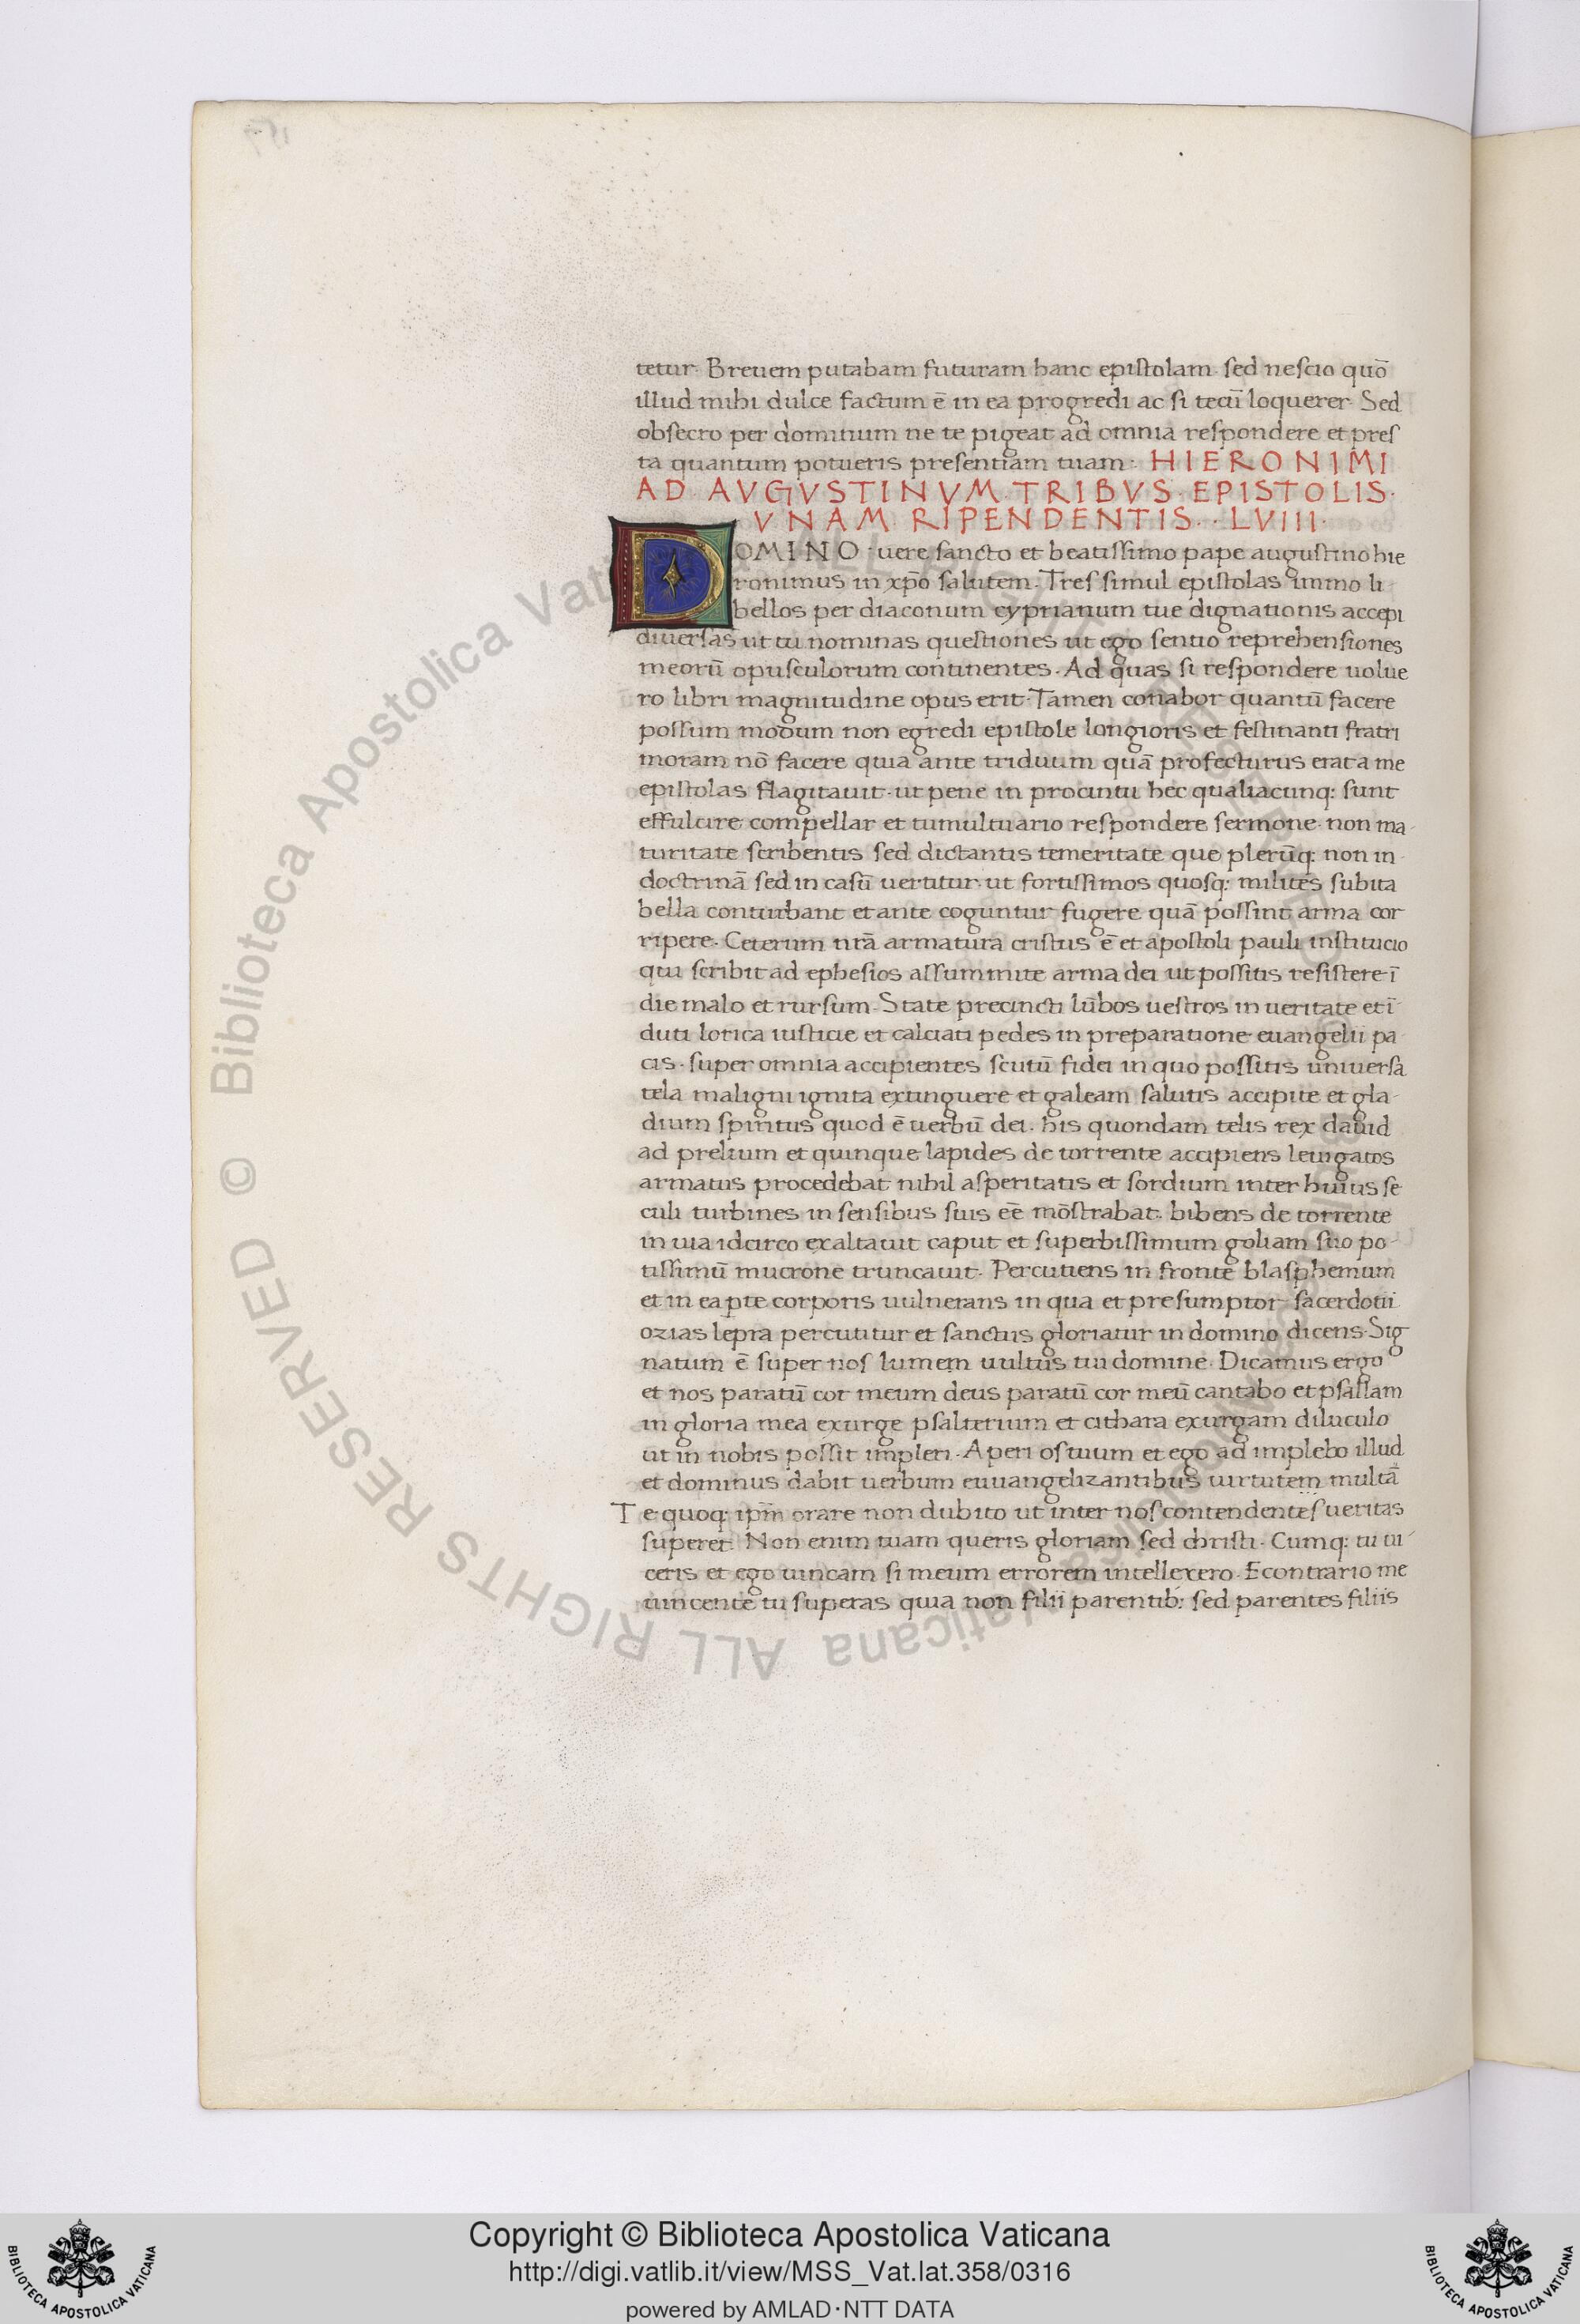 tetur. Breuem putabam futuram hanc epistolam. sed nescio quō
illud mihi dulce factum ē in ea progredi ac si tecū loquerer. Sed
obsecro per dominum ne te pigeat ad omnia respondere et pres
ta quantum potueris presentiam tuam: HIERONIMI
AD AVGVSTINVM. TRIBVS. EPISTOLIS.
VNAM RIPENDENTIS. . LVIIII.
DOMINO uere sancto et beatissimo pape augustino hie
ronimus in xp̄o salutem. Tres simul epistolas immo li
bellos per diaconum cyprianum tue dignationis accepi
diuersas ut tu nominas questiones ut ego sentio reprehensiones
meorū opusculorum continentes. Ad quas si respondere uolue
ro libri magnitudine opus erit. Tamen conabor quantū facere
possum modum non egredi epistole longioris et festinanti fratri
moram nō facere quia ante triduum quā profecturus erat a me
epistolas flagitauit. ut pene in procintu hec qualiacunq: sunt
effulcire compellar et tumultuario respondere sermone. non ma-
turitate scribentis sed dictantis temeritate que plerūq: non in
doctrinā sed in casū uertitur. ut fortissimos quosq: milites subita
bella conturbant et ante coguntur fugere quā possint arma cor
ripere. Ceterum nrā armatura cristus ē et apostoli pauli institucio
qui scribit ad ephesios assummite arma dei ut possitis resistere ī
die malo et rursum. State precincti lūbos uestros in ueritate et ī
duti lorica iusticie et calciati pedes in preparatione euangelii pa
cis. super omnia accipientes scutū fidei in quo possitis uniuersa
tela maligni ignita extinguere et galeam salutis accipite et gla-
dium spiritus quod ē uerbū dei. his quondam telis rex dauid
ad prelium et quinque lapides de torrente accipiens leuigatos
armatus procedebat nihil asperitatis et sordium inter huius se
culi turbines in sensibus suis eē mōstrabat. bibens de torrente
in uia idcirco exaltauit caput et superbissimum goliam suo po-
tissimū mucrone truncauit. Percutiens in fronte blasphemum
et in ea pte corporis uulnerans in qua et presumptor sacerdotii
ozias lepra percutitur et sanctus gloriatur in domino dicens. Sig
natum ē super nos lumem uultus tui domine. Dicamus ergo
et nos paratū cor meum deus paratū cor meū cantabo et psallam
in gloria mea exurge psalterium et cithara exurgam diluculo
ut in nobis possit impleri. Aperi os tuum et ego ad implebo illud
et dominus dabit uerbum euuangelizantibus uirtutem multā
Te quoq: ip̄m orare non dubito ut inter nos contendentes ueritas
superet. Non enim tuam queris gloriam sed christi. Cumq: tu ui
ceris et ego uincam si meum errorem intellexero. Econtrario me
uincente tu superas quia non filii parentib: sed parentes filiis
© Biblioteca Apostolica Vaticana ALL RIGHTS RESERVED © Biblioteca Apostolica Vaticana ALL RIGHTS RESERVED
Copyright © Biblioteca Apostolica Vaticana
http://digi.vatlib.it/view/MSS_Vat.lat.358/0316
powered by AMLAD·NTT DATA
BIBLIOTECA APOSTOLICA VATICANA
BIBLIOTECA APOSTOLICA VATICANA